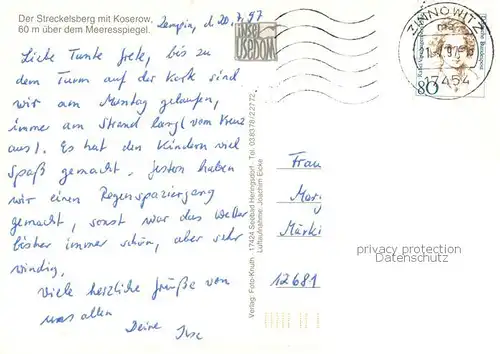 Der Streckelsberg mit Koserow,
60 m über dem Meeresspiegel.
Zempin, d 20.7.97
Liebe Tante Grete, bis zu
dem Turm auf der Karte sind
wir am Montag gelaufen,
immer am Strand lang (vom Kreuz
aus). Es hat den Kindern viel
Spaß gemacht. Gestern haben
wir einen Regenspaziergang
gemacht, sonst war das Wetter
bisher immer schön, aber sehr
windig.
Viele herzliche Grüße von
uns allen
Deine
Verlag: Foto-Knuth · 17424 Seebad Heringsdorf · Tel. 038378/22772
Luftaufnahme: Joachim Eicke
insel
usedom
ZINNOWITZ
17454
80
Deutsche Bundespost
Frau
Mar
Märki
12681
privacy protection
Datenschutz